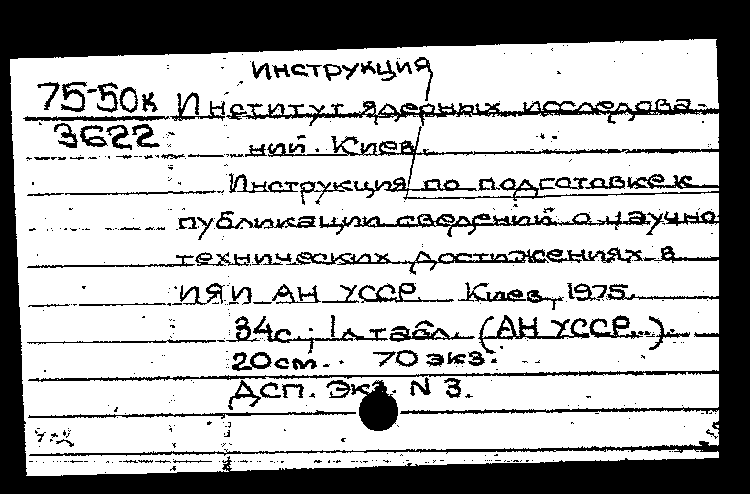 инструкция
75-50к Институт ядерных исследова-
3622 ний. Киев.
Инструкция по подготовке к
публикации сведений о научно
технических достижениях в
ИЯИ АН УССР. Киев, 1975.
34с.; 1л табл. (АН УССР...).
20см. 70 экз.
ДСП. Экз. N 3.